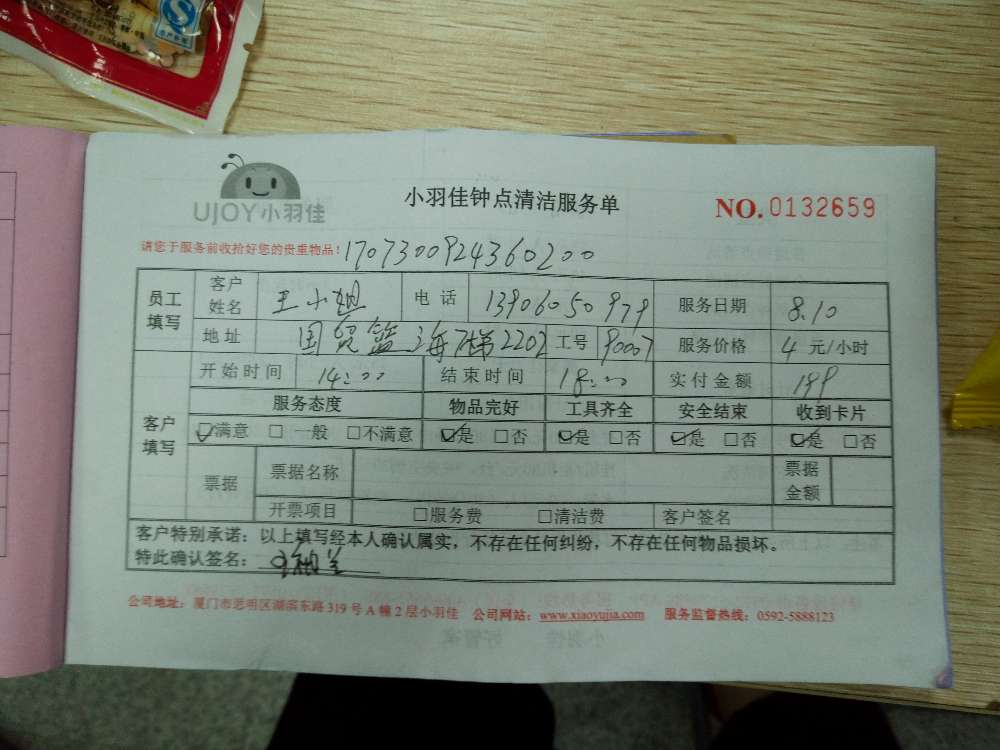 UJOY小羽佳
小羽佳钟点清洁服务单
NO. 0132659
请您于服务前收拾好您的贵重物品！ 1707300924360200
员工填写 客户姓名 王小姐 电话 13906050979 服务日期 8.10
地址 国贸蓝海 2202 工号 90007 服务价格 4 元/小时
客户填写 开始时间 14:00 结束时间 18:00 实付金额 199
服务态度 物品完好 工具齐全 安全结束 收到卡片
☑满意 □一般 □不满意 ☑是 □否 ☑是 □否 ☑是 □否 ☑是 □否
票据 票据名称 票据金额
开票项目 □服务费 □清洁费 客户签名
客户特别承诺：以上填写经本人确认属实，不存在任何纠纷，不存在任何物品损坏。
特此确认签名：
公司地址：厦门市思明区湖滨东路 319 号 A 幢 2 层小羽佳 公司网站：www.xiaoyujia.com 服务监督热线：0592-5888123